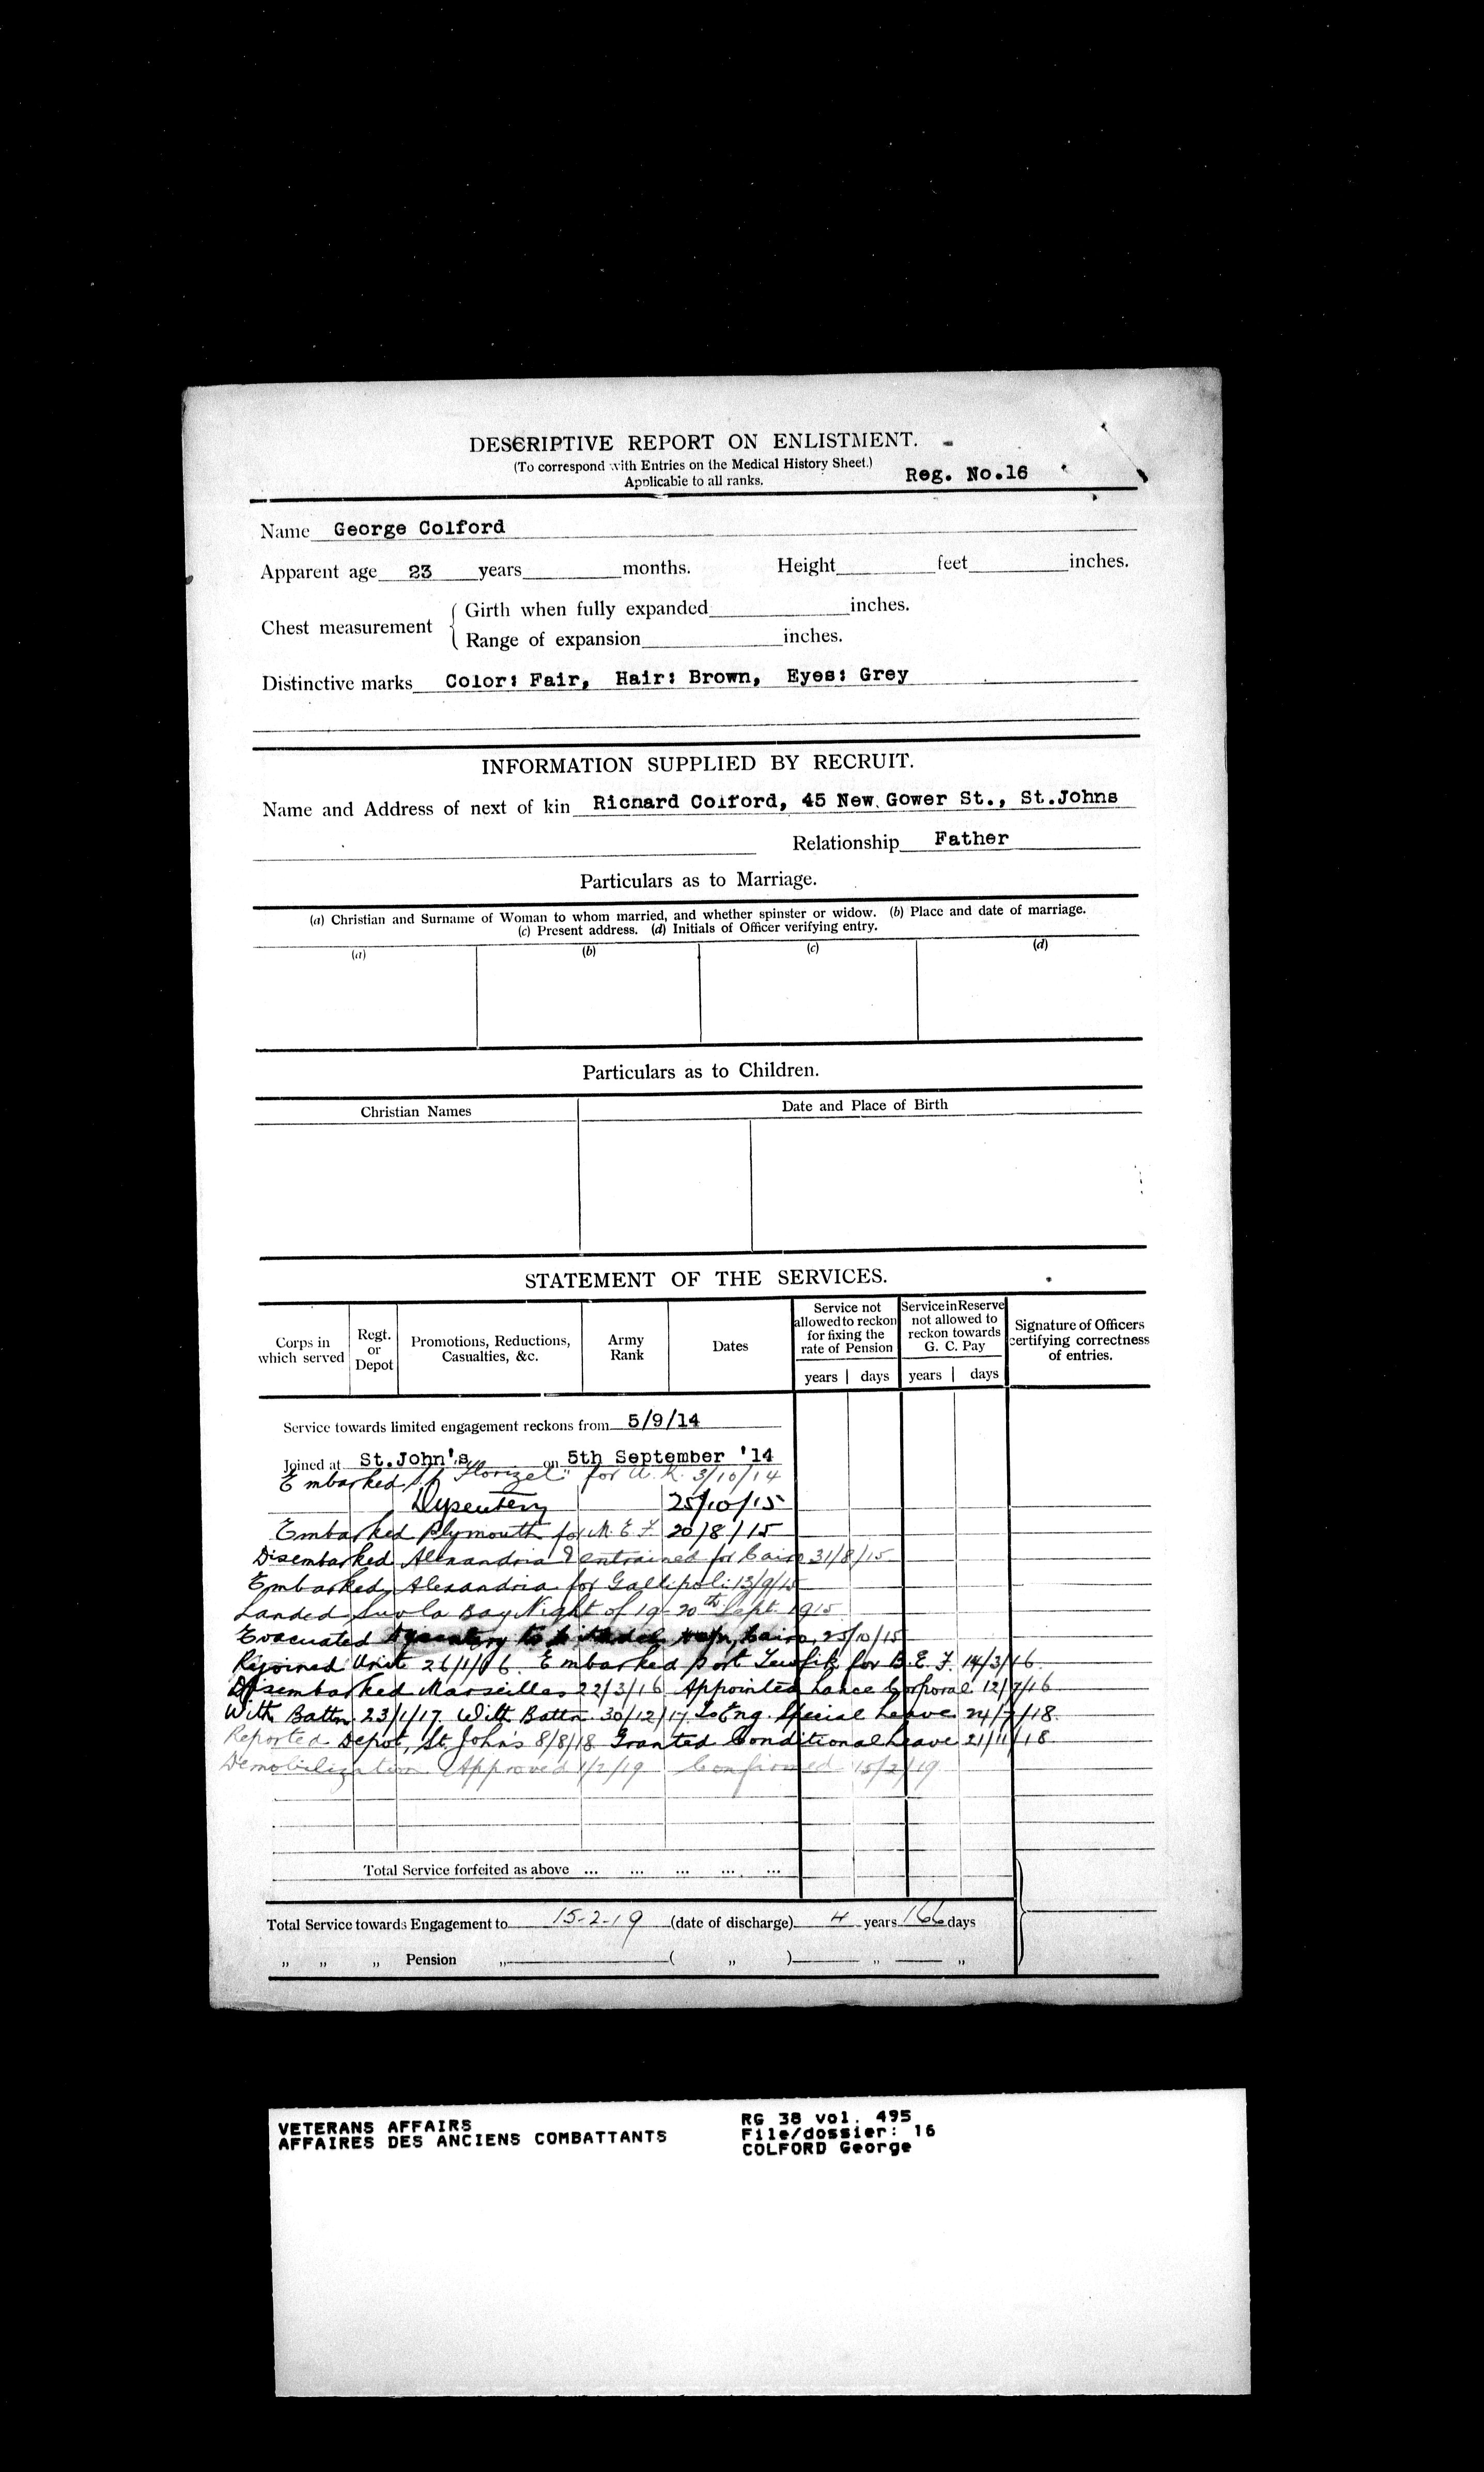 DESCRIPTIVE REPORT ON ENLISTMENT.
(To correspond with Entries on the Medical History Sheet.)
Applicable to all ranks.
Reg. No.16
Name George Colford
Apparent age 23 years months. Height feet inches.
Chest measurement
Girth when fully expanded inches.
Range of expansion inches.
Distinctive marks Color: Fair, Hair: Brown, Eyes: Grey
INFORMATION SUPPLIED BY RECRUIT.
Name and Address of next of kin Richard Colford, 45 New Gower St., St.Johns
Relationship Father
Particulars as to Marriage.
(a) Christian and Surname of Woman to whom married, and whether spinster or widow. (b) Place and date of marriage.
(c) Present address. (d) Initials of Officer verifying entry.
(a) (b) (c) (d)
Particulars as to Children.
Christian Names Date and Place of Birth
STATEMENT OF THE SERVICES.
Corps in which served
Regt. or Depot
Promotions, Reductions, Casualties, &c.
Army Rank
Dates
Service not allowed to reckon for fixing the rate of Pension
years days
Service in Reserve not allowed to reckon towards G. C. Pay
years days
Signature of Officers certifying correctness of entries.
Service towards limited engagement reckons from 5/9/14
Joined at St.John's on 5th September '14
Embarked "Florizel" for U. K. 3/10/14
Dysentery 25/10/15
Embarked Plymouth for M. E. F. 20/8/15
Disembarked Alexandria & entrained for Cairo 31/8/15
Embarked Alexandria for Gallipoli 13/9/15
Landed Suvla Bay Night of 19-20th Sept. 1915
Evacuated Dysentery to Citadel Cairo, 25/10/15
Rejoined Unit 26/1/16 Embarked Port Tewfik for B. E. F. 14/3/16
Disembarked Marseilles 22/3/16 Appointed Lance Corporal 12/7/16
With Battn. 23/1/17 With Battn. 30/12/17 To Eng. Special Leave 24/7/18
Reported Depot, St. John's 8/8/18 Granted Conditional Leave 21/11/18
Demobilization Approved 1/2/19 Confirmed 15/2/19
Total Service forfeited as above ... ... ... ... ...
Total Service towards Engagement to 15-2-19 (date of discharge) 4 years 166 days
„ „ „ Pension „ ( „ ) „ „
VETERANS AFFAIRS
AFFAIRES DES ANCIENS COMBATTANTS
RG 38 vol. 495
File/dossier: 16
COLFORD George